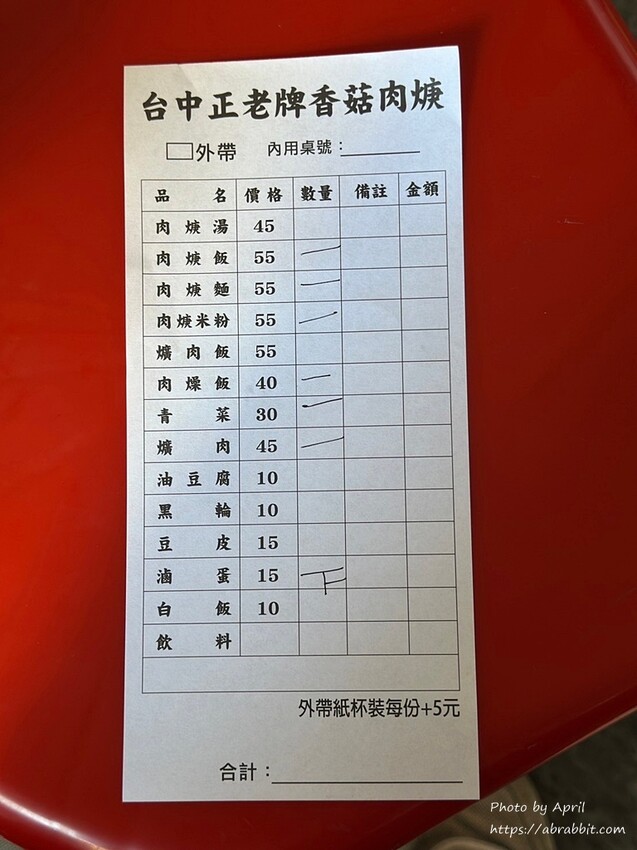 台中正老牌香菇肉焿
外帶 內用桌號：
品名 價格 數量 備註 金額
肉焿湯 45
肉焿飯 55 一
肉焿麵 55 一
肉焿米粉 55 一
爌肉飯 55
肉燥飯 40 一
青菜 30 一
爌肉 45 一
油豆腐 10
黑輪 10
豆皮 15
滷蛋 15 下
白飯 10
飲料
外帶紙杯裝每份+5元
合計：
Photo by April
https://abrabbit.com